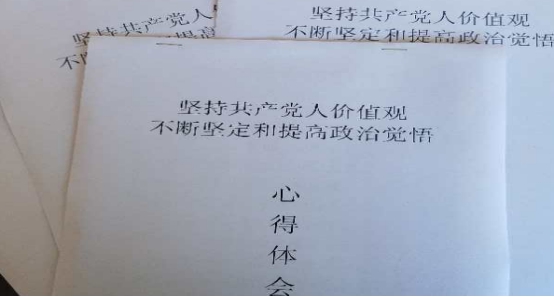 坚持共产党人价值观
不断坚定和提高政治觉悟
坚持共产党人
不 提高
坚持共产党人价值观
不断坚定和提高政治觉悟
心
得
体
会